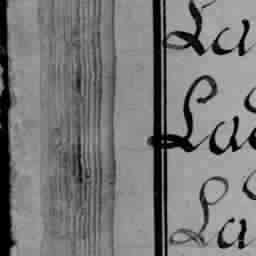 La
La
La